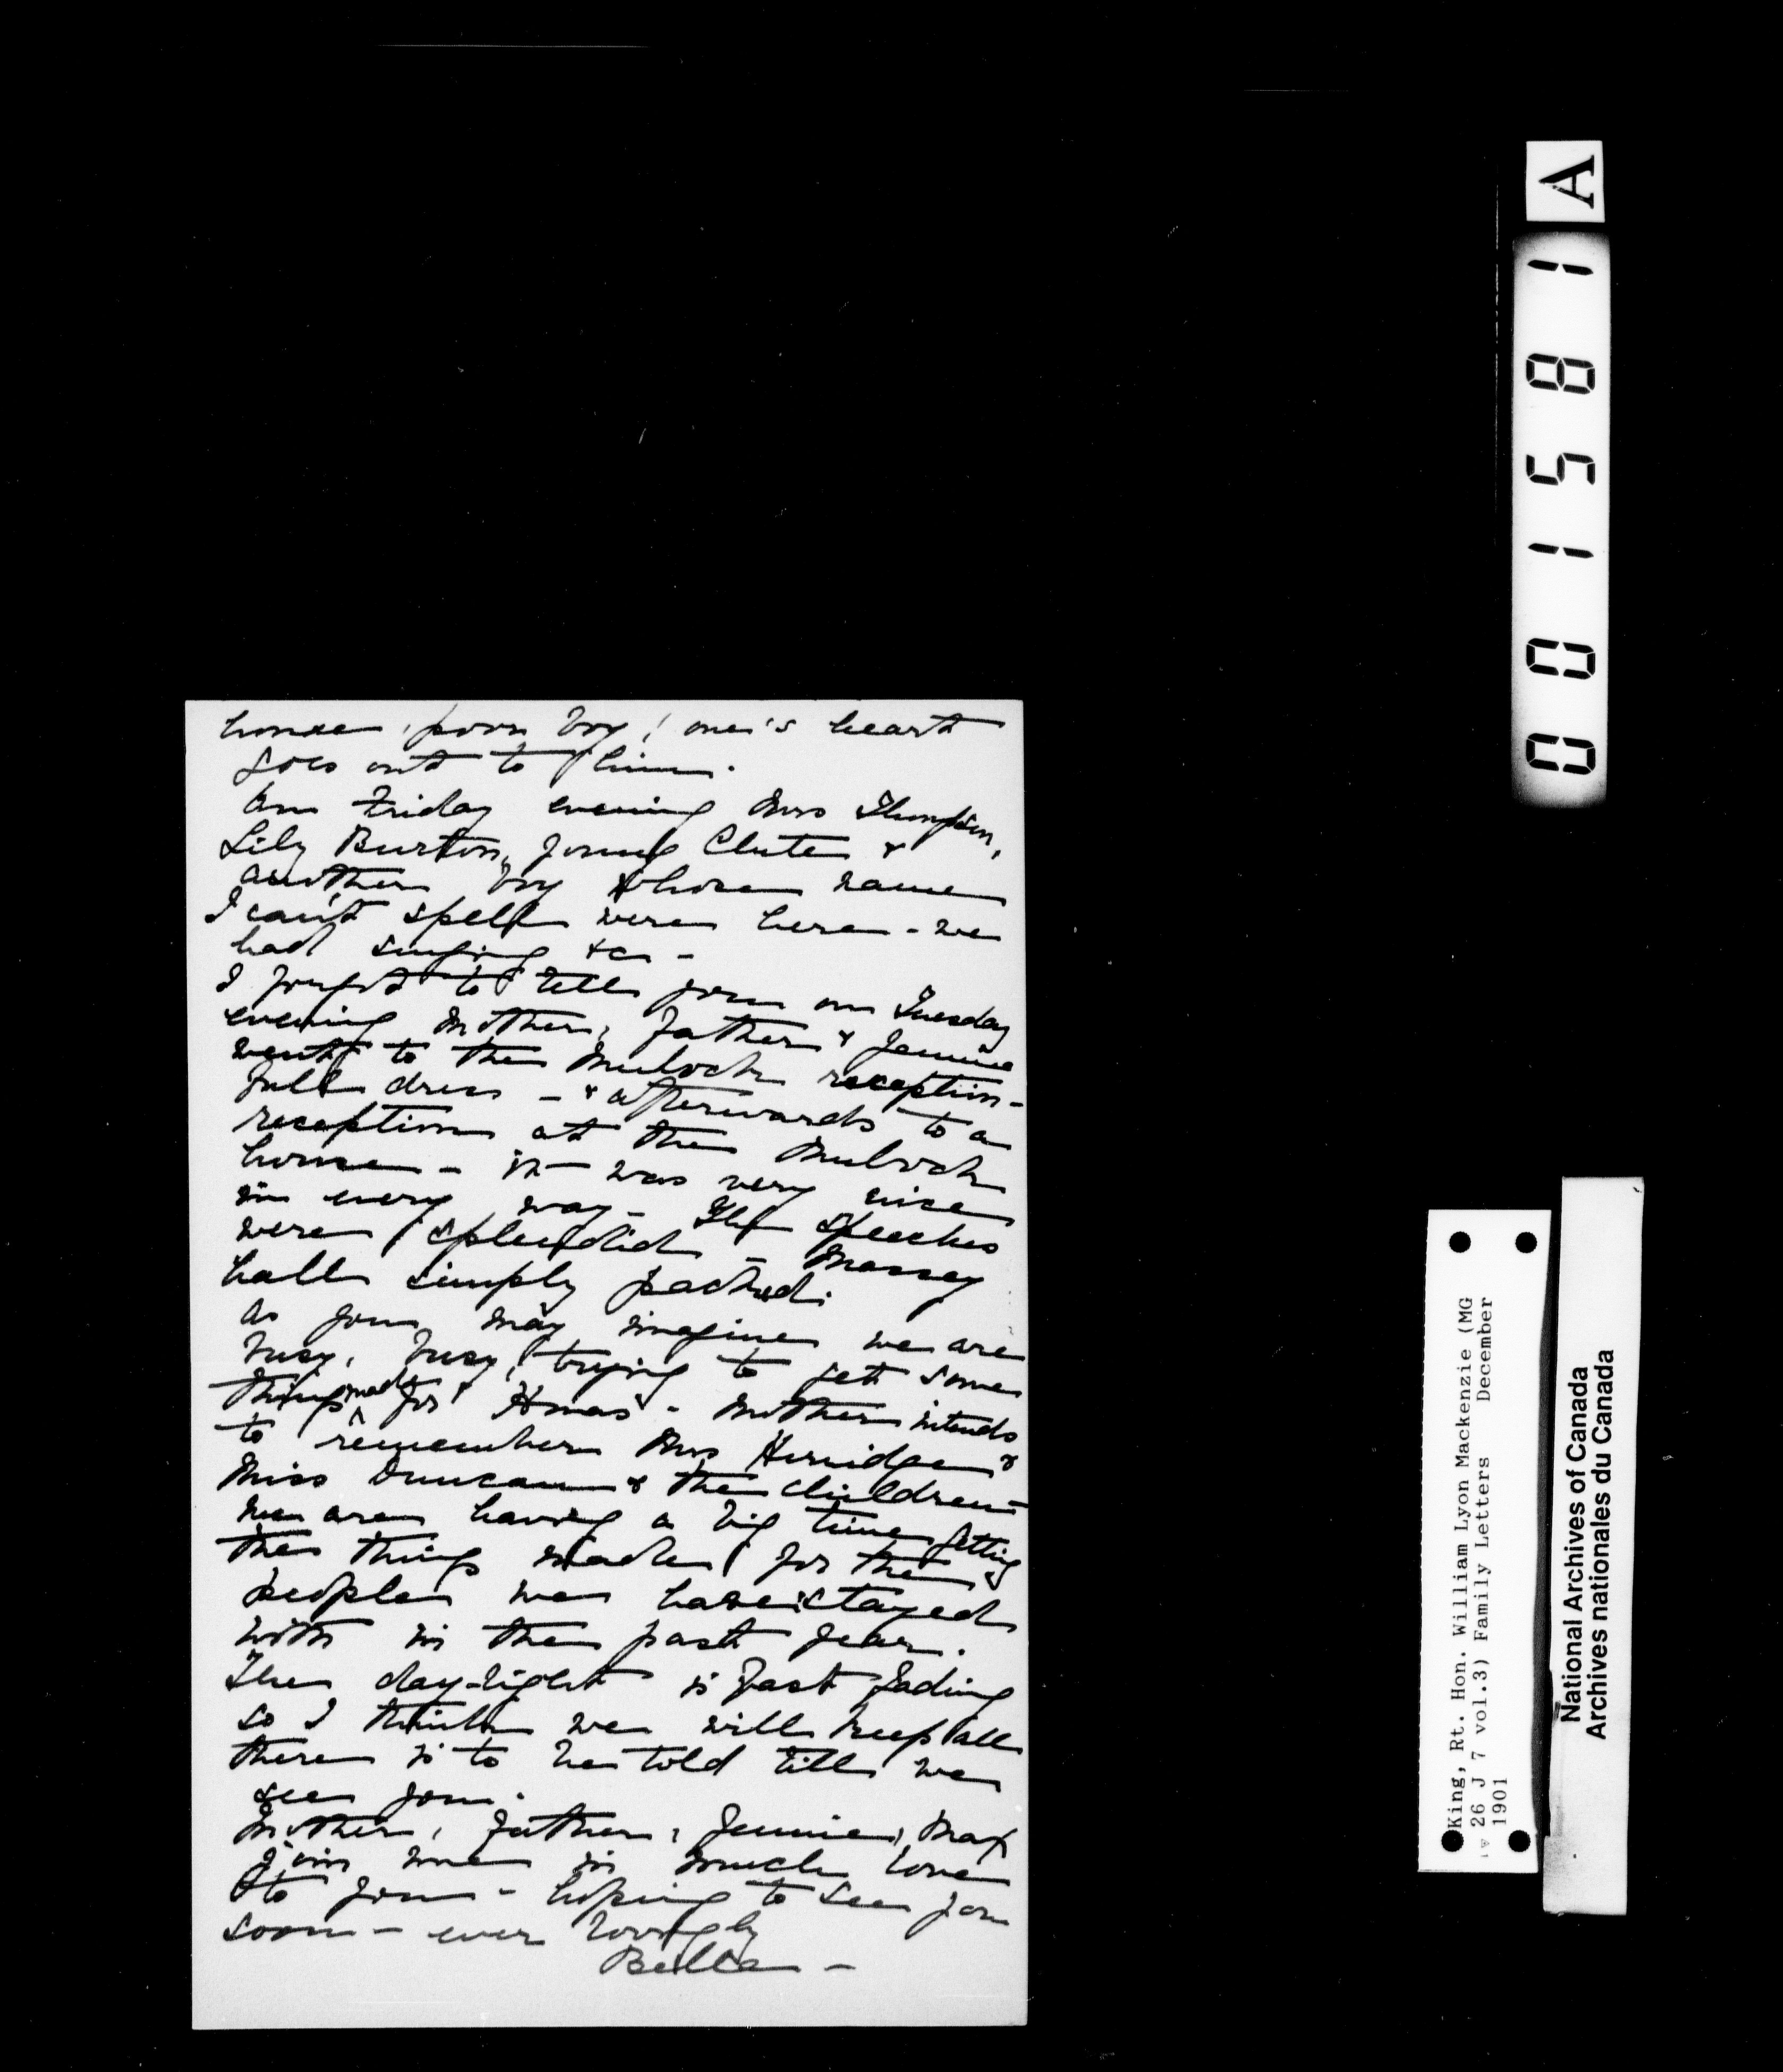 house, poor boy! one's heart
goes out to him.
On Friday evening Mrs Thompson,
Lily Burton, young Clute &
another boy whose name
I can't spell were here - we
had singing &c -
I forgot to tell you on Tuesday
evening Mother, Father & Jennie
went to the Mulock reception -
full dress - & afterwards to a
reception at the Mulock
house - it was very nice
in every way - The speeches
were splendid - Massey
hall simply packed.
As you may imagine we are
busy, busy, trying to get some
things made for Xmas - Mother intends
to remember Mrs Herridge &
Miss Duncan & the children -
we are having a big time getting
the things made for the
people we have stayed
with in the past year.
The day-light is fast fading
so I think we will keep all
there is to be told till we
see you.
Mother, Father, Jennie, Max
join me in much love
to you - hoping to see you
soon - ever lovingly
Bella -
A
001581
King, Rt. Hon. William Lyon Mackenzie (MG
26 J 7 vol.3) Family Letters December
1901
National Archives of Canada
Archives nationales du Canada